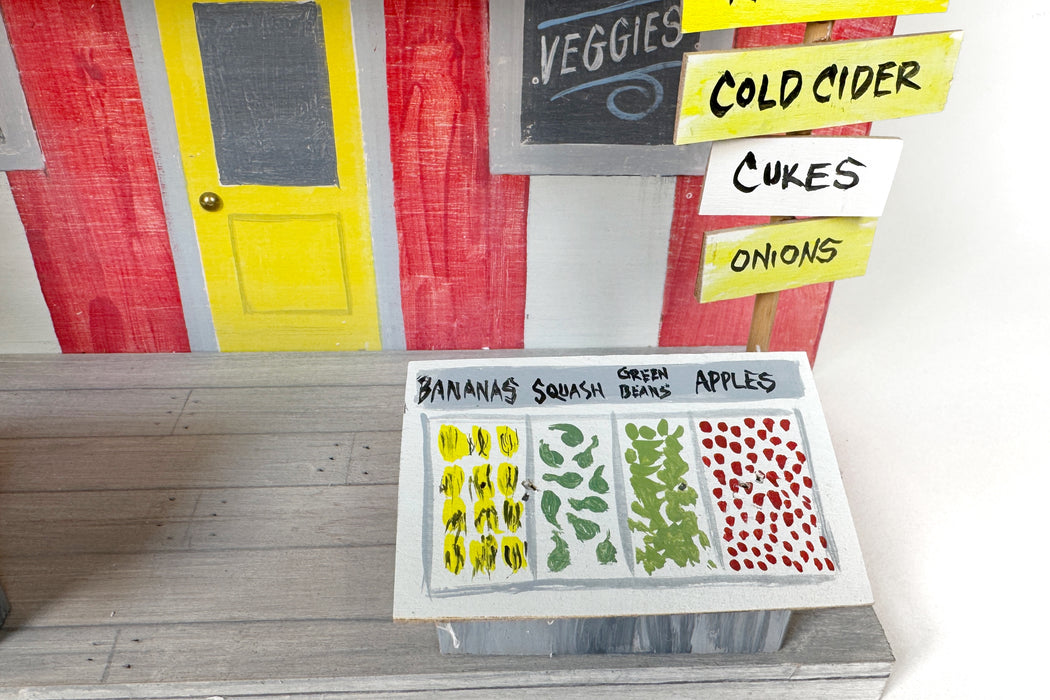 VEGGIES
COLD CIDER
CUKES
ONIONS
BANANAS SQUASH GREEN BEANS APPLES